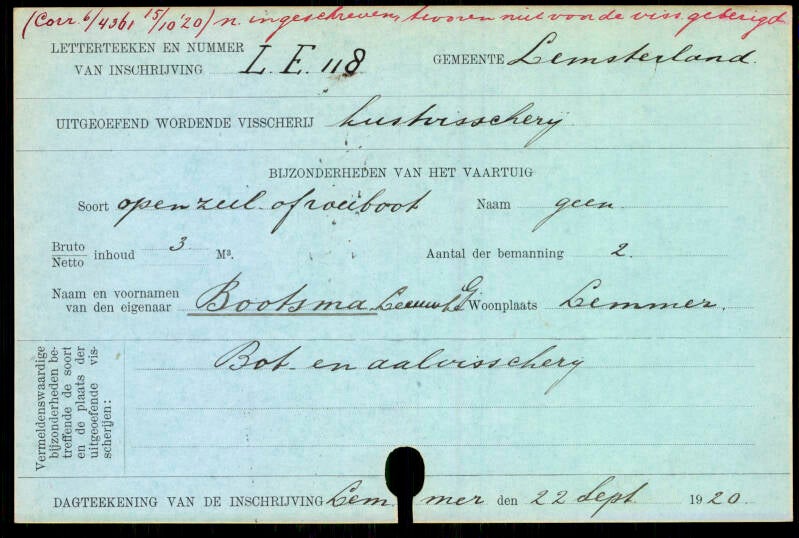 (Corr. 6/4361 15/10 '20) n. ingeschreven, tevoren niet voor de viss. gebezigd
LETTERTEEKEN EN NUMMER VAN INSCHRIJVING L.E. 118 GEMEENTE Lemsterland.
UITGEOEFEND WORDENDE VISSCHERIJ kustvisscherij
BIJZONDERHEDEN VAN HET VAARTUIG
Soort open zeil- of roeiboot Naam geen
Bruto/Netto inhoud 3 M³. Aantal der bemanning 2.
Naam en voornamen van den eigenaar Bootsma, G Woonplaats Lemmer.
Vermeldenswaardige bijzonderheden betreffende de soort en de plaats der uitgeoefende visscherijen:
Bot- en aalvisscherij
DAGTEEKENING VAN DE INSCHRIJVING Lemmer den 22 Sept 1920.